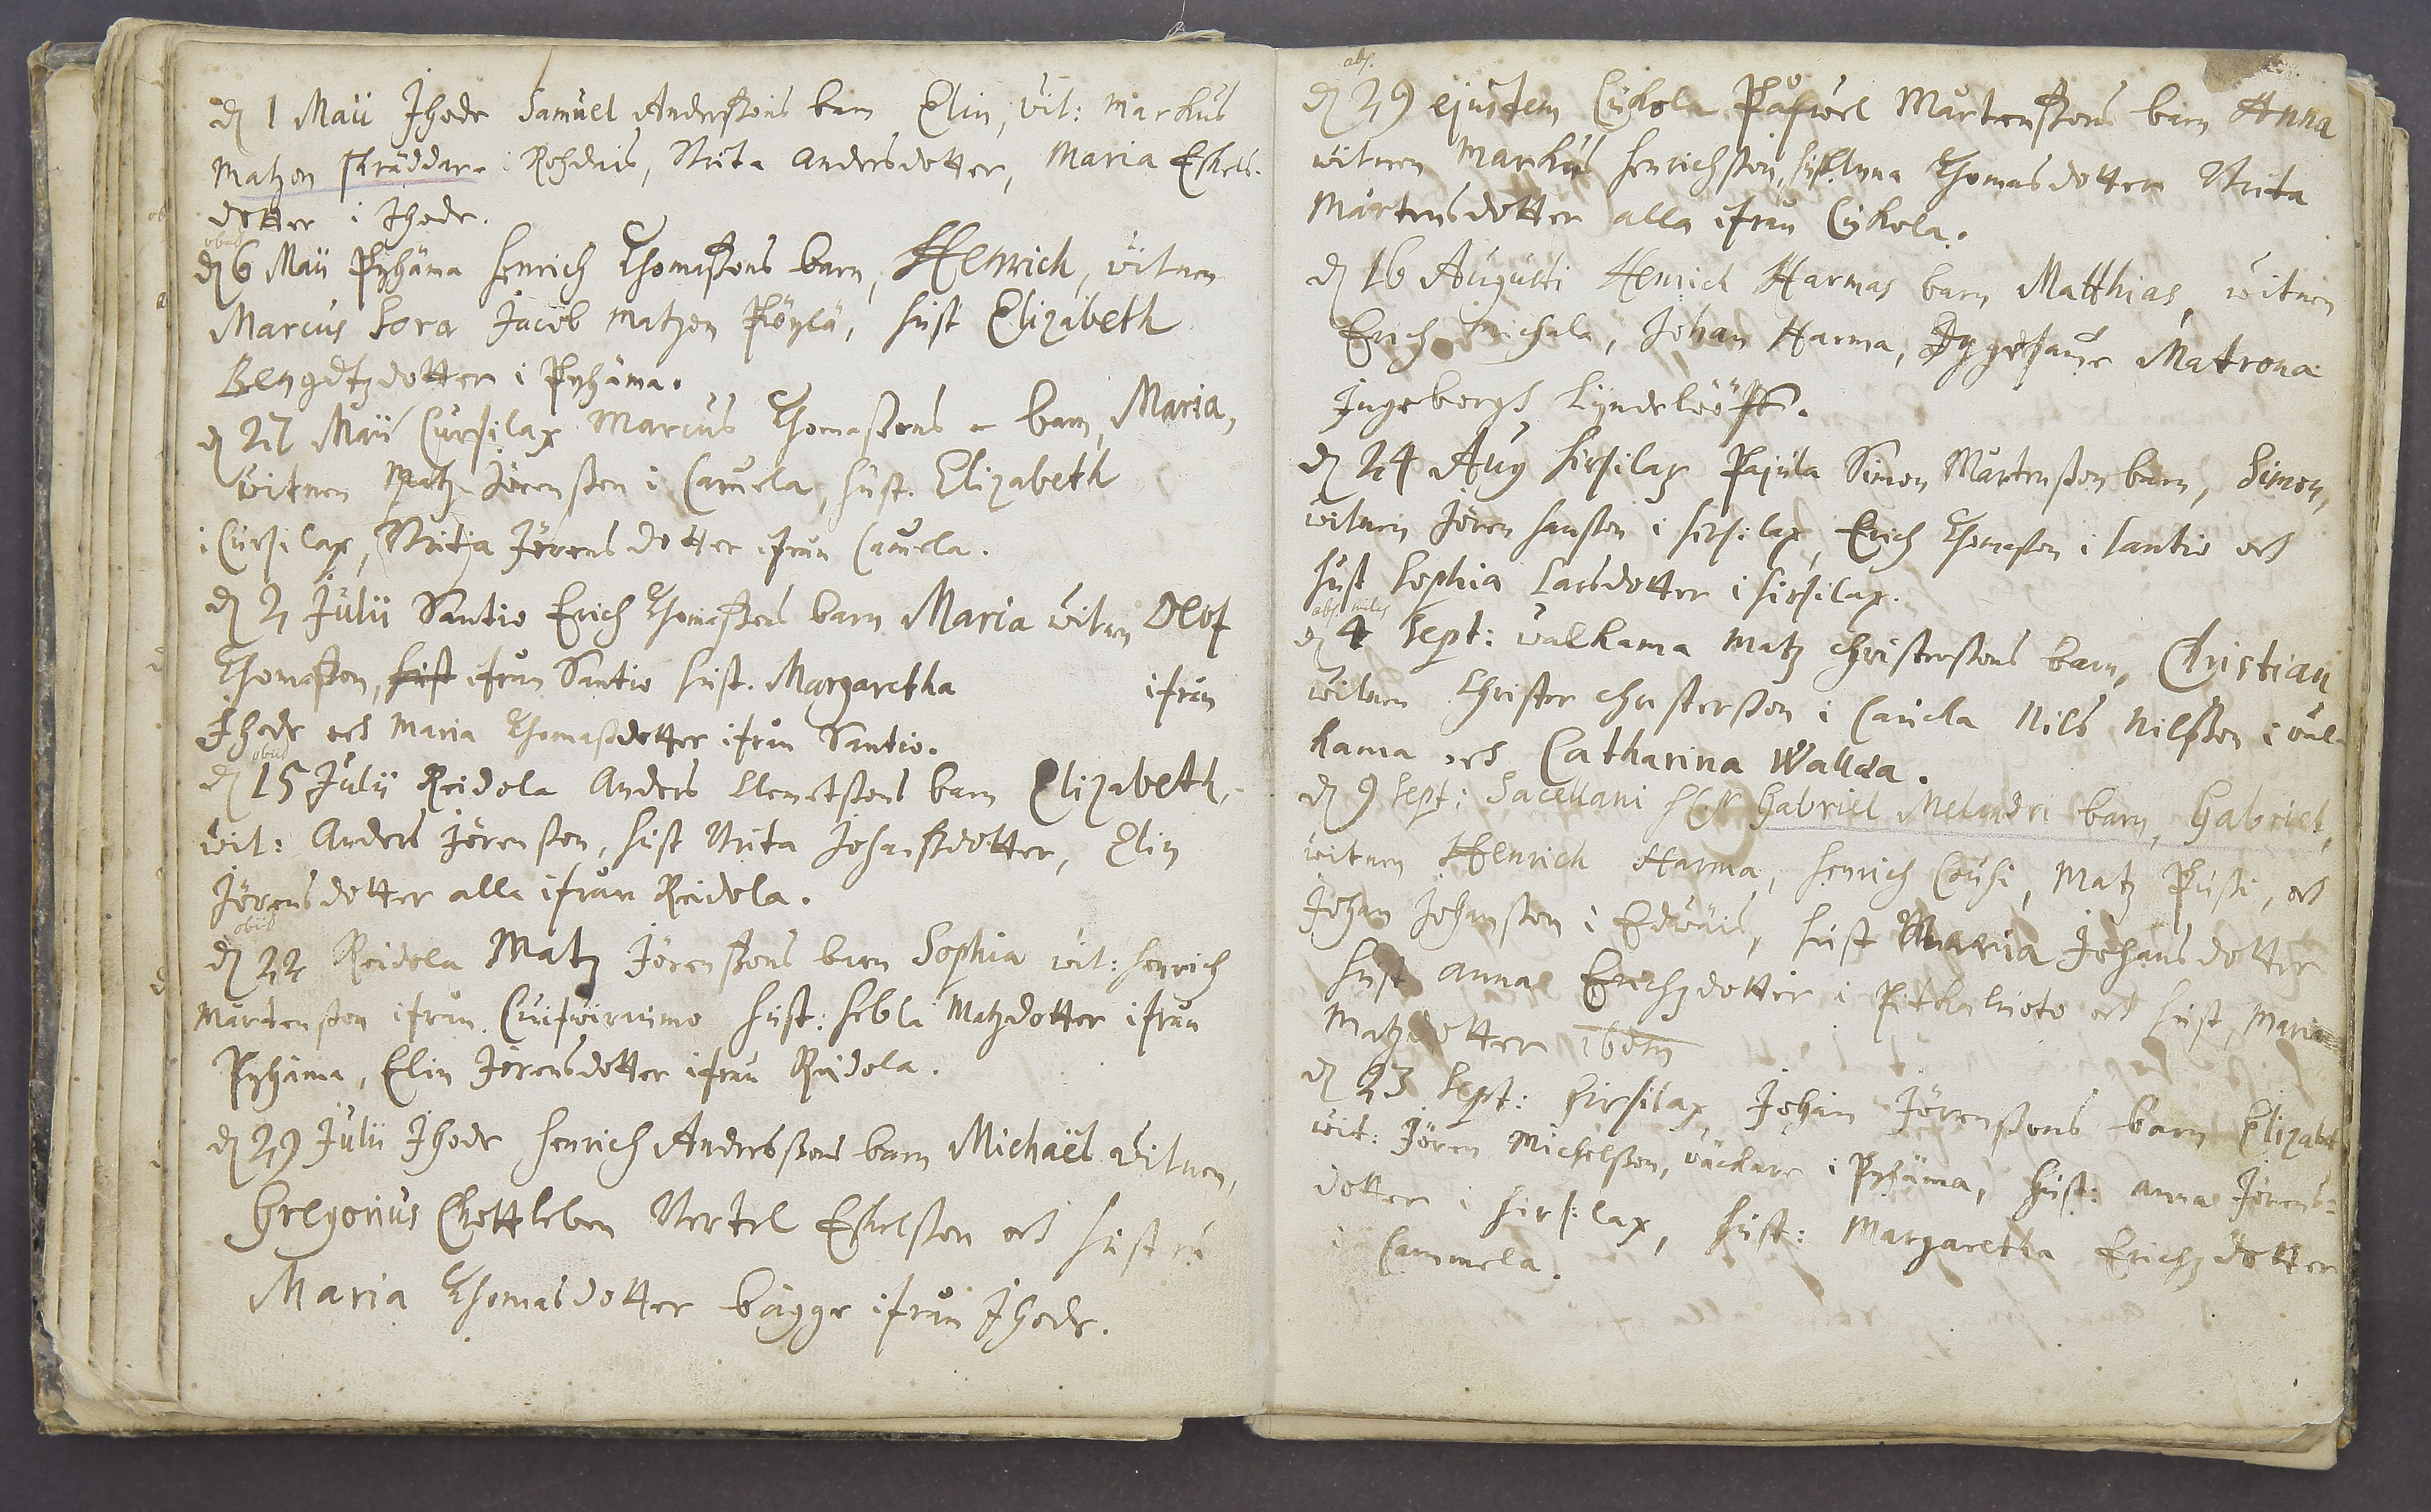 d 1 Maii Ihode Samuel Anderssons barn Elin, wit: Markus
Matzon skräddare i Rohdais, Brita Andersdotter, Maria Eskels-
dotter i Ihode.
obiit
d 6 Maii Pyhäma Henrich Thomassons barn, Henrich, witnen
Marcus Sora Jacob Matzon Pöylä, hust Elizabeth
Bengdtzdotter i Pyhäma.
d 27 Maii Cursilax Marcus Thomassons barn, Maria,
witnen Matz Jörensson i Caruela, hust. Elizabeth
i Cursilax, Brita Jörensdotter ifrån Caruela.
d 2 Julii Santio Erich Thomassons barn Maria witnen Olof
Thomasson, hust ifrån Santio hust. Margaretha ifrån
Ihode och Maria Thomassdotter ifrån Santio.
obiit
d 15 Julii Reidola Anders Clemetssons barn Elizabeth,
wit: Anders Jörensson, hust Brita Johansdotter, Elin
Jörensdotter alla ifrån Reidola.
obiit
d 22 Reidola Matz Jörenssons barn Sophia wit: Henrich
Mårtensson ifrån hust: Sebla Matzdotter ifrån
Pyhäma, Elin Jörensdotter ifrån Reidola.
d 29 Julii Ihode Henrich Anderssons barn Michaël witnen,
Gregorius Chottleben Bertel Eskelsson och hustru
Maria Thomasdotter bägge ifrån Ihode.
obs.
d 29 ejusdem Cykola Påfwel Mårtenssons barn Anna
witnen Markus Henrichsson, hust Anna Thomasdotter Brita
Mårtensdotter alla ifrån Cykola.
d 16 Augusti Henrich Harmas barn Matthias, witnen
Erich Michala, Johan Harma, Dygdesamme Matrona
Ingeborgh Lyndelööff.
d 24 Aug Hirsilax Pajula Simon Mårtensson barn, Simon,
witnen Jören Hansson i Hirsilax, Erich Thomasson i Santio och
hust Sophia Larsdotter i Hirsilax.
obs. miles
d 4 Sept: Walkama Matz Christerssons barn, Christian
witnen Christer Christersson i Cauela Nils Nilsson i Wal-
kama och Catharina Wallda.
d 9 Sept: Sacellani Gabriel Melandri barn, Gabriel,
witnen Henrich Harma, Henrich Couhi, Matz Pussi, och
Johan Johansson i Edwäis, hust Maria Johansdotter
hust Anna Erichzdotter i Pitkeluoto och hust Maria
Matzdotter ibdm
d 23 Sept: Hirsilax Johan Jörenssons barn Elizabet
wit: Jören Michelsson, wäckare i Pyhäma, hust: Anna Jörens-
dotter i Hirsilax, hust: Margaretha Erichzdotter
i Cammela.